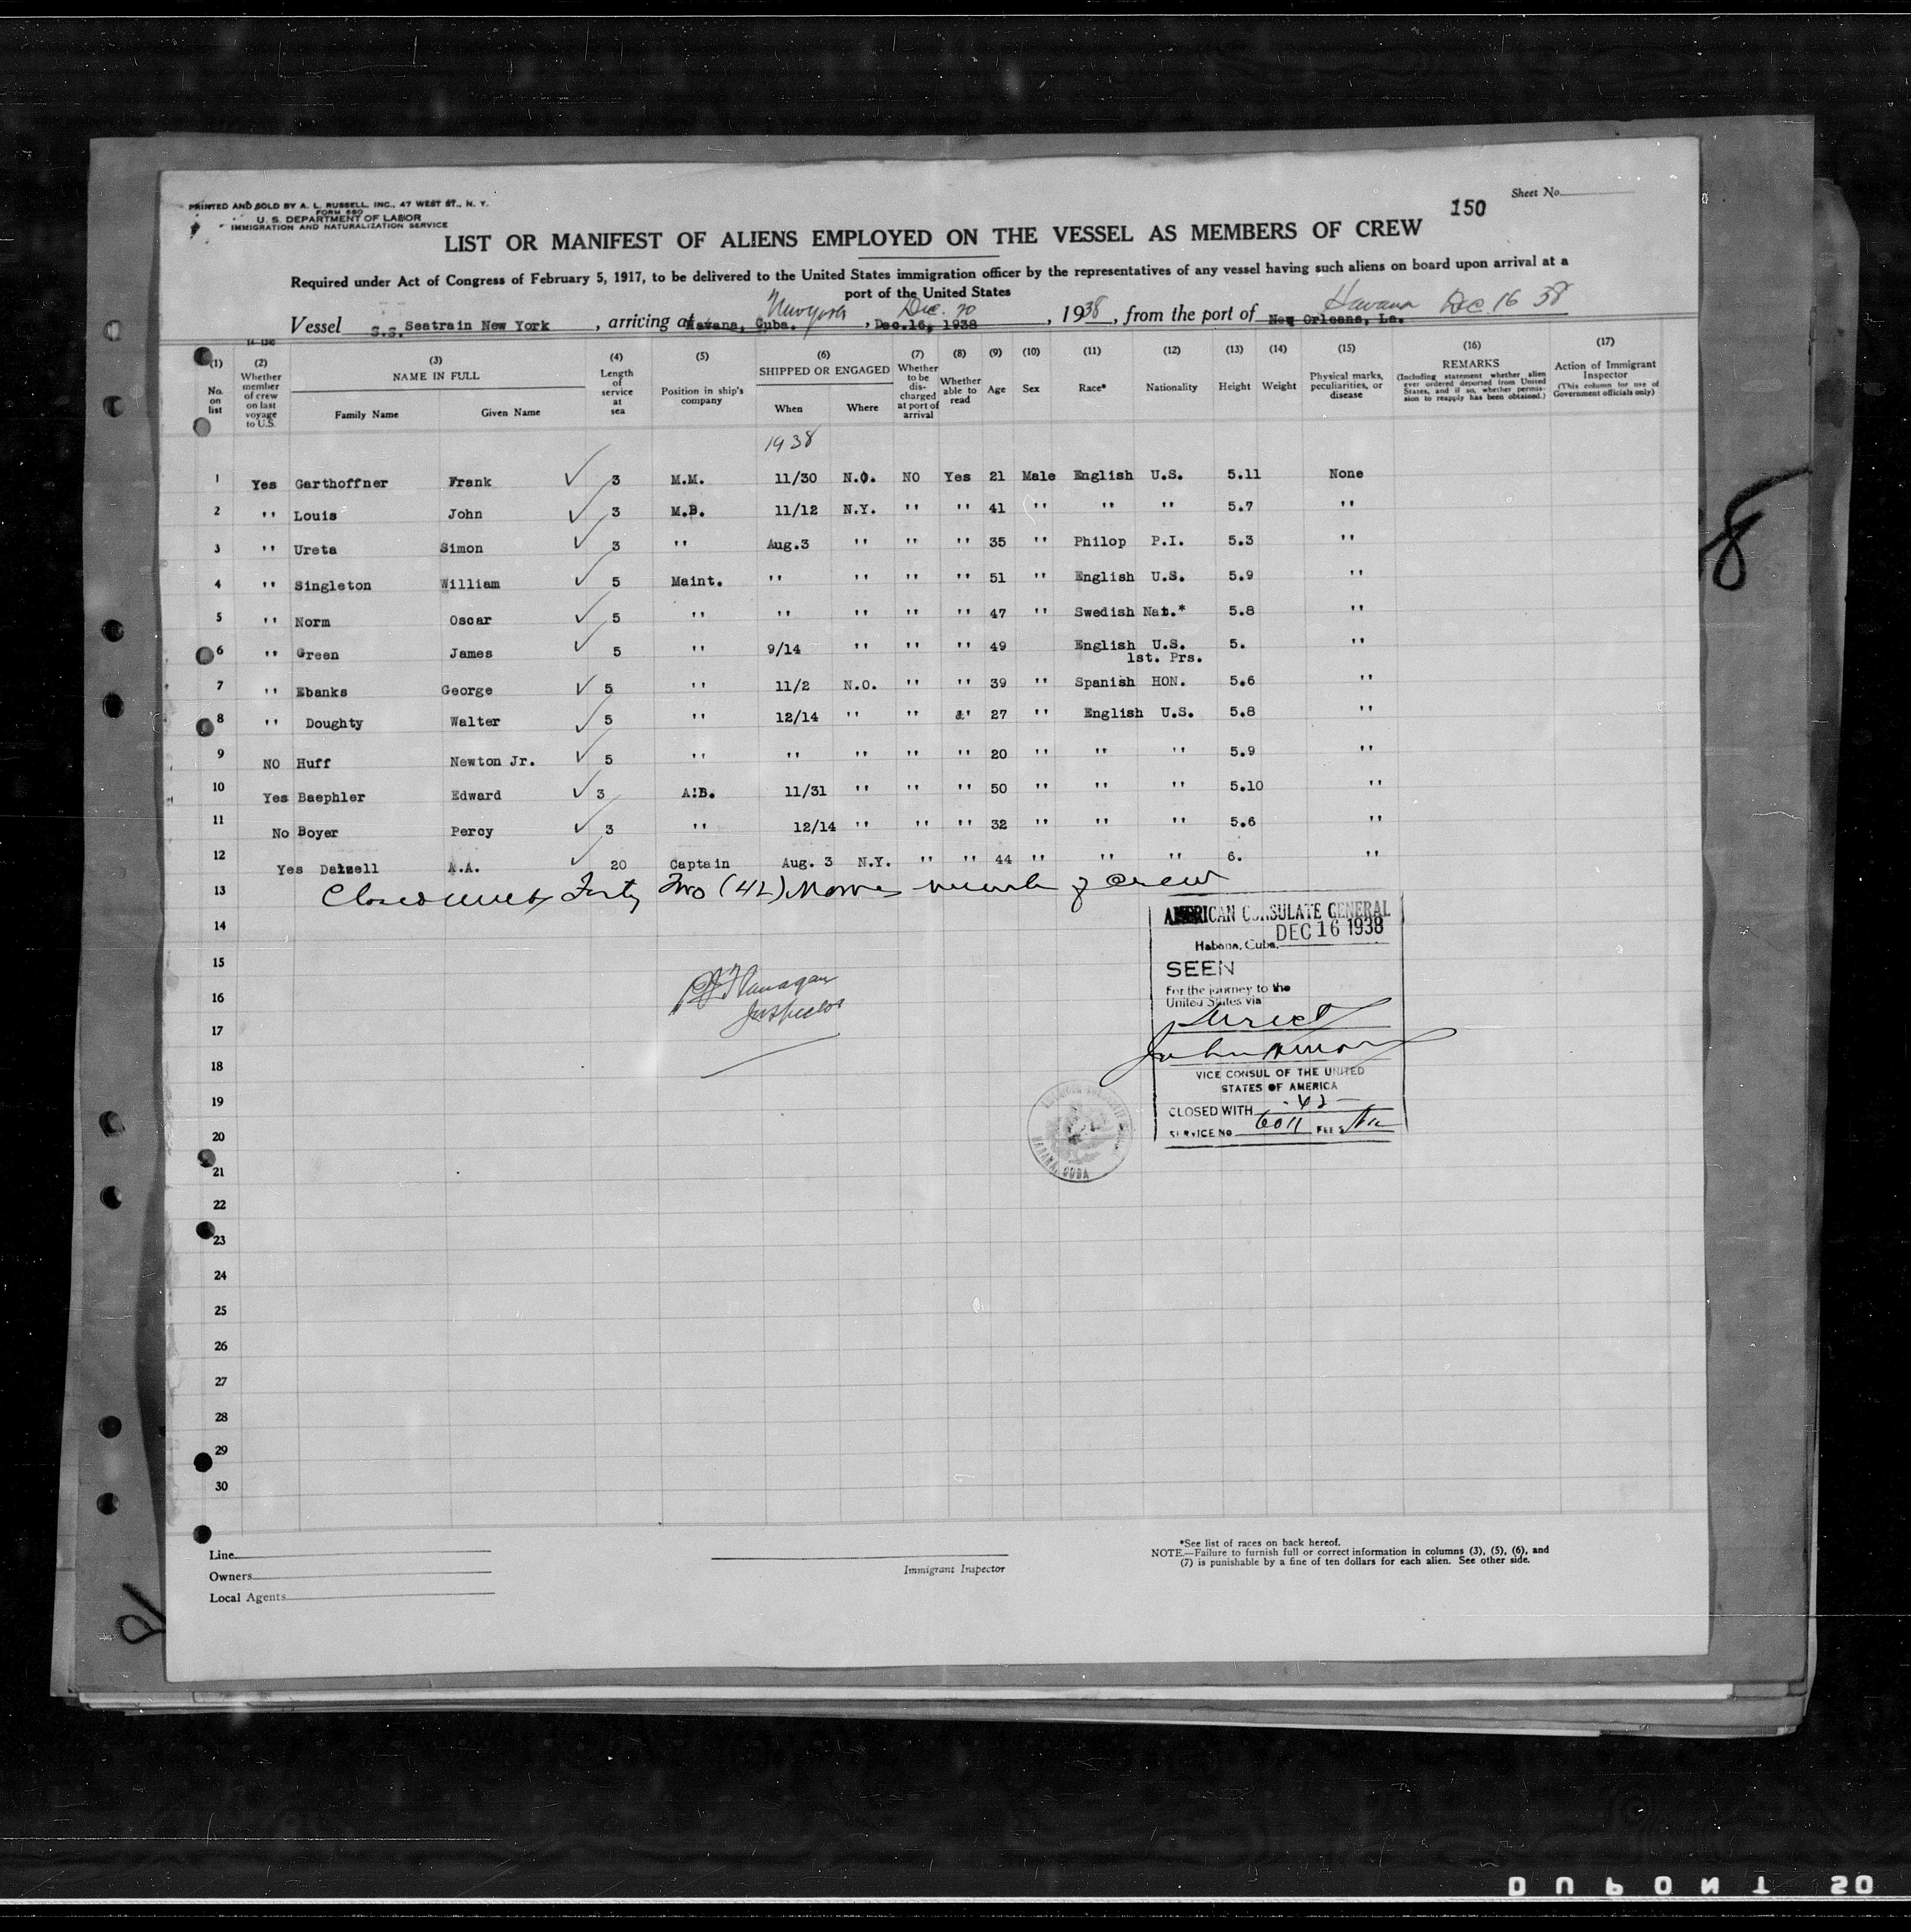 Sheet No.
150
PRINTED AND SOLD BY A. L. RUSSELL, INC., 47 WEST ST., N. Y.
FORM 680
U. S. DEPARTMENT OF LABOR
IMMIGRATION AND NATURALIZATION SERVICE
LIST OR MANIFEST OF ALIENS EMPLOYED ON THE VESSEL AS MEMBERS OF CREW
Required under Act of Congress of February 5, 1917, to be delivered to the United States immigration officer by the representatives of any vessel having such aliens on board upon arrival at a
port of the United States
New York Dec. 20 Havana Dec 16 38
Vessel S.S. Seatrain New York, arriving at Havana, Cuba., Dec.16, 1938, 1938, from the port of New Orleans, La.
(1) (2) (3) (4) (5) (6) (7) (8) (9) (10) (11) (12) (13) (14) (15) (16) (17)
No. on list
Whether member of crew on last voyage to U.S.
NAME IN FULL
Family Name Given Name
Length of service at sea
Position in ship's company
SHIPPED OR ENGAGED
When Where
Whether to be discharged at port of arrival
Whether able to read
Age
Sex
Race*
Nationality
Height
Weight
Physical marks, peculiarities, or disease
REMARKS
(Including statement whether alien ever ordered deported from United States, and if so, whether permission to reapply has been obtained.)
Action of Immigrant Inspector
(This column for use of Government officials only)
1938
1 Yes Garthoffner Frank 3 M.M. 11/30 N.O. NO Yes 21 Male English U.S. 5.11 None
2 '' Louis John 3 M.B. 11/12 N.Y. '' '' 41 '' '' '' 5.7 ''
3 '' Ureta Simon 3 '' Aug.3 '' '' '' 35 '' Philop P.I. 5.3 ''
4 '' Singleton William 5 Maint. '' '' '' '' 51 '' English U.S. 5.9 ''
5 '' Norm Oscar 5 '' '' '' '' '' 47 '' Swedish Nat.* 5.8 ''
6 '' Green James 5 '' 9/14 '' '' '' 49 English U.S. 5. ''
1st. Prs.
7 '' Ebanks George 5 '' 11/2 N.O. '' '' 39 '' Spanish HON. 5.6 ''
8 '' Doughty Walter 5 '' 12/14 '' '' '' 27 '' English U.S. 5.8 ''
9 NO Huff Newton Jr. 5 '' '' '' '' '' 20 '' '' '' 5.9 ''
10 Yes Baephler Edward 3 A.B. 11/31 '' '' '' 50 '' '' '' 5.10 ''
11 No Boyer Percy 3 '' 12/14 '' '' '' 32 '' '' '' 5.6 ''
12 Yes Dalzell A.A. 20 Captain Aug. 3 N.Y. '' '' 44 '' '' '' 6. ''
13 Closed with Forty Two (42) Names members of Crew
14
AMERICAN CONSULATE GENERAL
DEC 16 1938
Habana, Cuba,
15
SEEN
For the journey to the
United States via
Direct
16
Flanagan
Inspector
17
18
VICE CONSUL OF THE UNITED
STATES OF AMERICA
19
CLOSED WITH -42-
SERVICE NO. 6011 FEE $
20
HABANA, CUBA
21
22
23
24
25
26
27
28
29
30
Line
Owners
Local Agents
Immigrant Inspector
*See list of races on back hereof.
NOTE.—Failure to furnish full or correct information in columns (3), (5), (6), and
(7) is punishable by a fine of ten dollars for each alien. See other side.
DUPONT 50